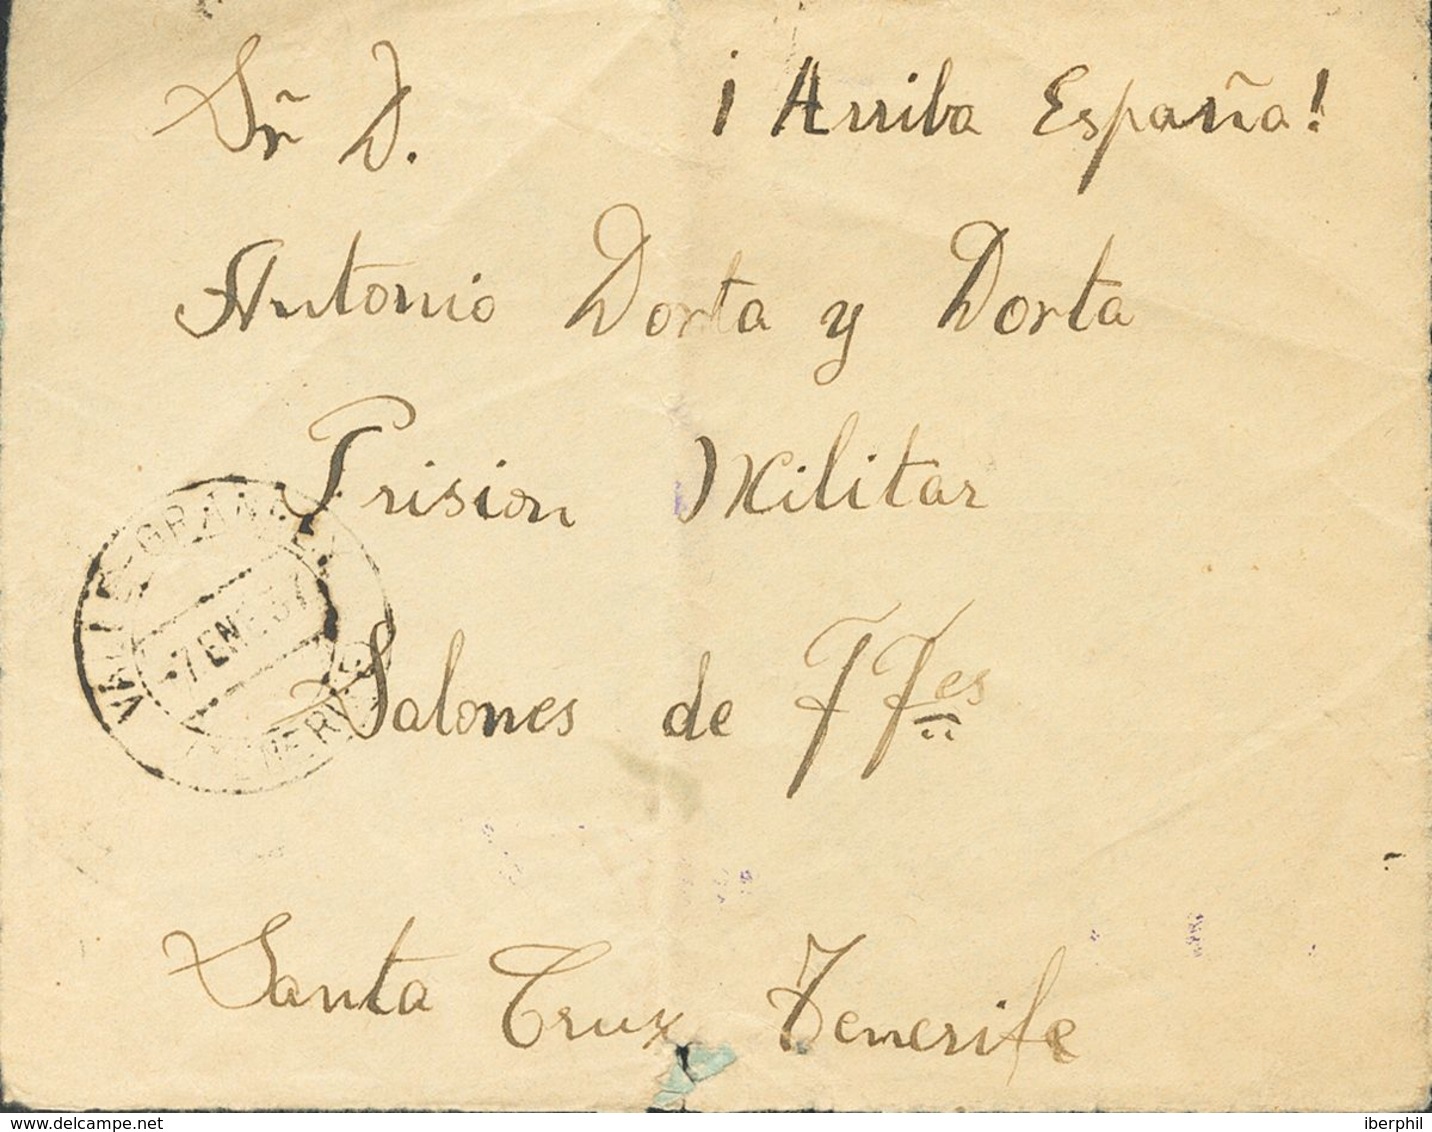 Sr̃ D. ¡Arriba España!
Antonio Dorta y Dorta
Prision Militar
Salones de FFes
Santa Cruz Tenerife
VALLE-GRAN REY
-7 ENE. 37
TENERIFE
www.delcampe.net
iberphil